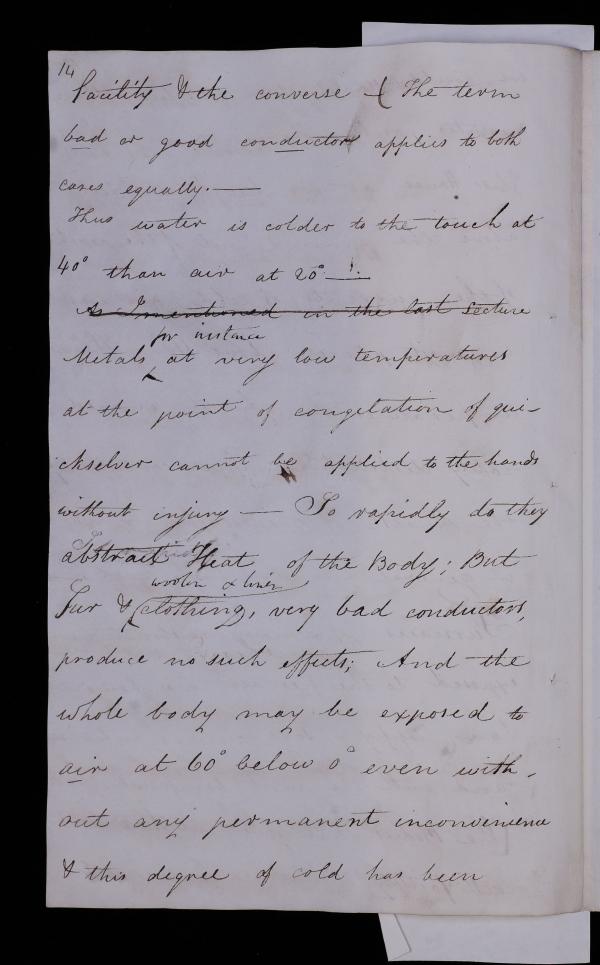 14
facility & the converse – ( The term
bad or good conductors applies to both
cases equally. —
Thus water is colder to the touch at
40° than air at 20° — ! —
As I mentioned in the last Lecture
for instance
Metals at very low temperatures
at the point of congelation of qui-
ckselver cannot be applied to the hands
without injury — So rapidly do they
abstract Heat of the Body; But
woolen & linen
Fur & (clothing, very bad conductors,
produce no such effects; And the
whole body may be exposed to
air at 60° below 0° even with-
out any permanent inconvenience
& this degree of cold has been